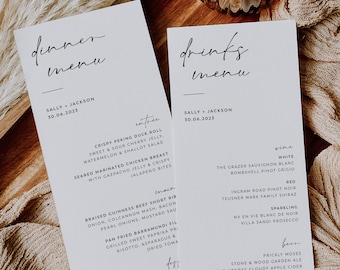 dinner
menu
SALLY + JACKSON
30.06.2023
entrée
CRISPY PEKING DUCK ROLL
SWEET & SOUR CHILLI SAUCE
WATERMELON & SHALLOT SALAD
SEARED MARINATED CHICKEN BREAST
WITH GAZPACHO JELLY & CRISPY
JALAPENO BITES
main
BRAISED GUINNESS BEEF SHORT RIB
ONION, COLCANNON MASH, BACON
PEARL ONIONS, MUSTARD
PAN FRIED BARRAMUNDI
GRILLED SWEET PAPRIKA
RISOTTO, ASPARAGUS &
DRIED TOMATO
drinks
menu
SALLY + JACKSON
30.06.2023
wine
WHITE
THE GRAZER SAUVIGNON BLANC
BOMBINELL PINOT GRIGIO
RED
INGRAM ROAD PINOT NOIR
TEUSNER WARK FAMILY SHIRAZ
SPARKLING
NV EN VIE BLANC DE NOIR
VIGNA SANZO PROSECCO
beer
PRICKLY MOSES
STONE & WOOD GARDEN ALE
CLOUDY APPLE CIDER